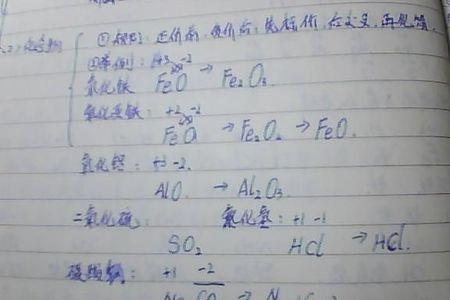 (2) 化合物 ①规则：正价前，负价后，先标价，后交叉，再见简.
②举例：+3 -2
氧化铁 FeO → Fe₂O₃.
氧化亚铁：+2 -2
FeO → Fe₂O₂ → FeO.
氧化铝：+3 -2.
AlO → Al₂O₃.
二氧化硫： 氯化氢：+1 -1
SO₂ HCl → HCl.
碳酸钠：+1 -2